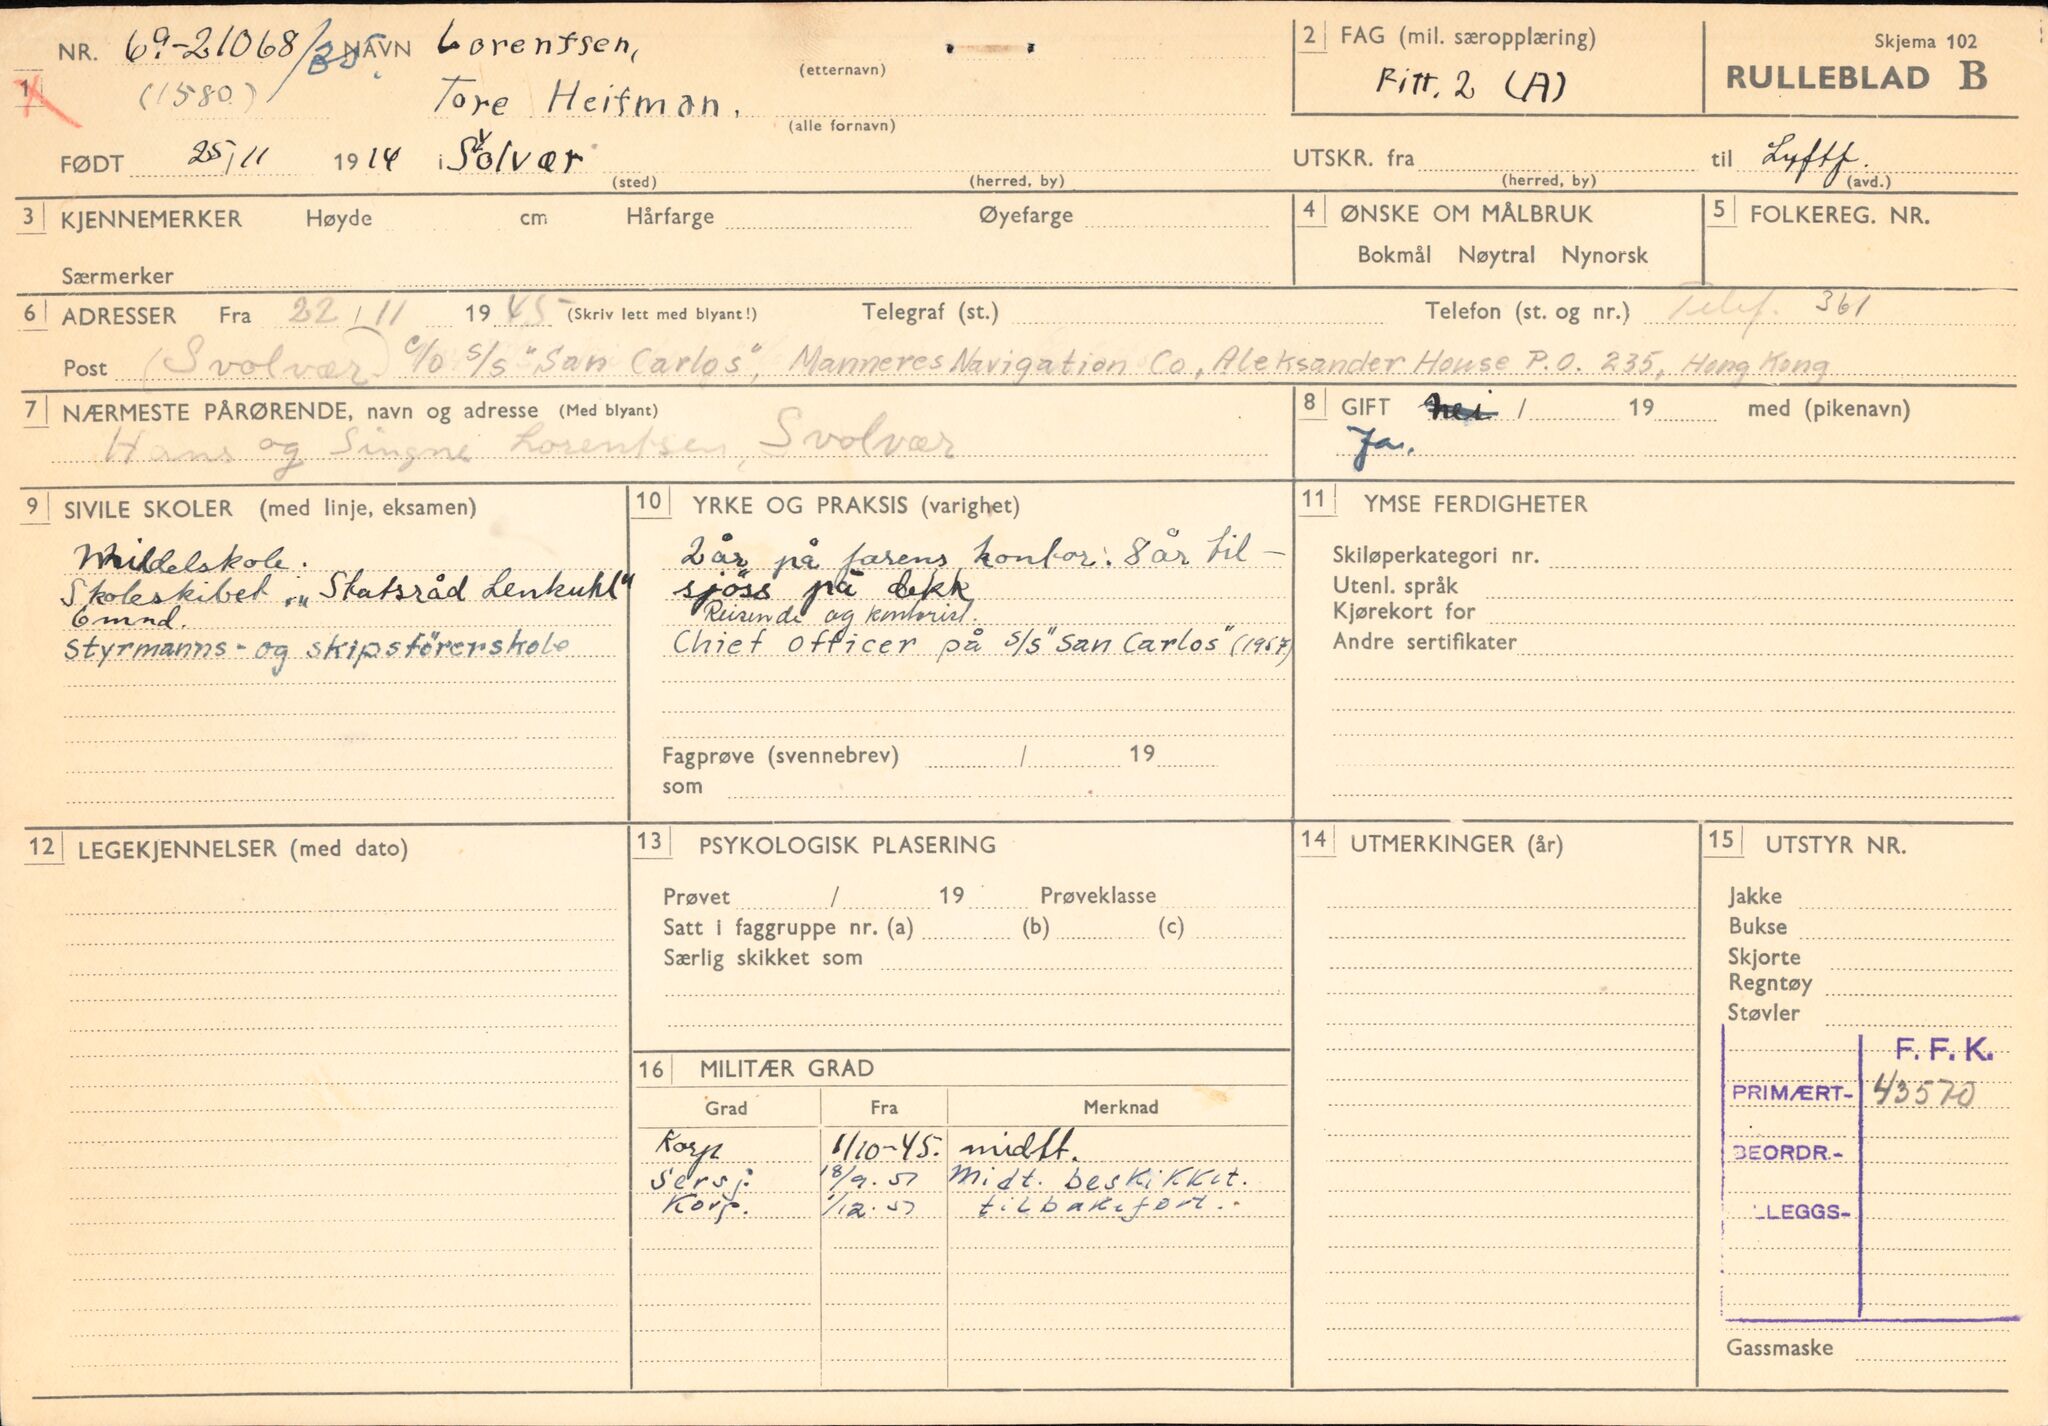 NR. 69-21068/35 NAVN Lorentsen, (etternavn)
1 (1580) Tore Heitman. (alle fornavn)
FØDT 25/11 1914 i Svolvær (sted) (herred, by)
2 FAG (mil. særopplæring)
Fitt. 2 (A)
Skjema 102
RULLEBLAD B
UTSKR. fra (herred, by) til Lyftf. (avd.)
3 KJENNEMERKER Høyde cm Hårfarge Øyefarge
Særmerker
4 ØNSKE OM MÅLBRUK
Bokmål Nøytral Nynorsk
5 FOLKEREG. NR.
6 ADRESSER Fra 22/11 1945 (Skriv lett med blyant!) Telegraf (st.) Telefon (st. og nr.) Telef. 361
Post (Svolvær) c/o s/s "San Carlos", Manneres Navigation Co, Aleksander House P.O. 235, Hong Kong
7 NÆRMESTE PÅRØRENDE, navn og adresse (Med blyant)
Hans og Singne Lorentsen, Svolvær
8 GIFT nei / 19 med (pikenavn)
Ja.
9 SIVILE SKOLER (med linje, eksamen)
Middelskole.
Skoleskibet "Statsråd Lenkuhl"
6 mnd.
Styrmanns- og skipsförerskole
10 YRKE OG PRAKSIS (varighet)
2 år på farens kontor. 8 år til-
sjöss på dekk
Reisende og kontorist.
Chief Officer på s/s "San Carlos" (1957)
Fagprøve (svennebrev) / 19
som
11 YMSE FERDIGHETER
Skiløperkategori nr.
Utenl. språk
Kjørekort for
Andre sertifikater
12 LEGEKJENNELSER (med dato)
13 PSYKOLOGISK PLASERING
Prøvet / 19 Prøveklasse
Satt i faggruppe nr. (a) (b) (c)
Særlig skikket som
14 UTMERKINGER (år)
15 UTSTYR NR.
Jakke
Bukse
Skjorte
Regntøy
Støvler
F. F. K.
PRIMÆRT- 43570
BEORDR.-
LEGGS-
Gassmaske
16 MILITÆR GRAD
Grad Fra Merknad
Korp 1/10-45. midlt.
Sersj. 18/9.51 Midt. beskikket.
Korp. 1/12.51 tilbakeført.